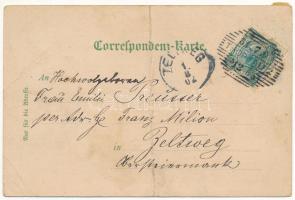 Correspondenz-Karte.
ZELTWEG
An Hochwolgeboren
Frau Emilie Preusser
per Adr. Hr. Franz Milion
in Zeltweg
Obersteiermark
Nur für die Adresse.